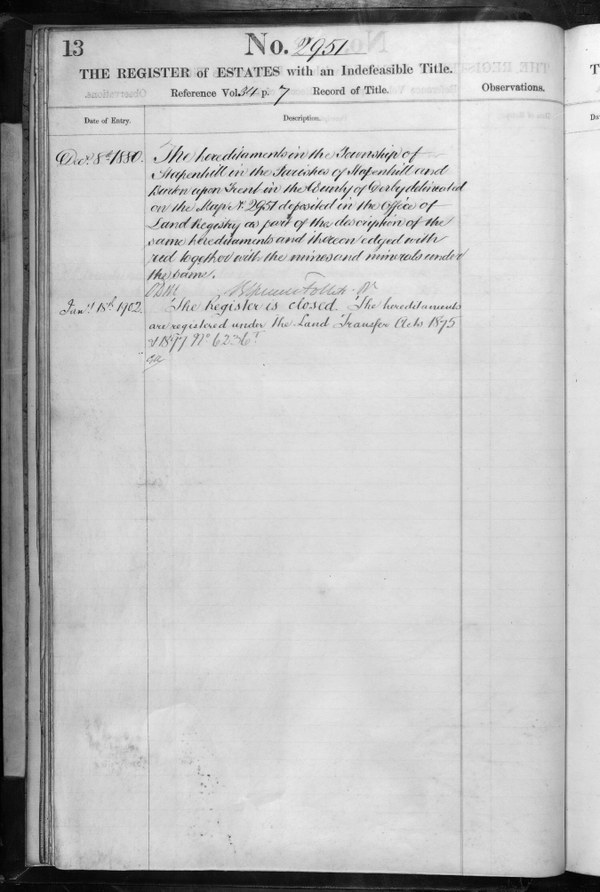 13
No. 2951
THE REGISTER of ESTATES with an Indefeasible Title.
Reference Vol. 34 p. 7 Record of Title.
Observations.
Date of Entry.
Description.
Decr. 8th 1880.
The hereditaments in the Township of
Stapenhill in the Parishes of Stapenhill and
Burton upon Trent in the County of Derby delineated
on the Map No. 2951 deposited in the Office of
Land Registry as part of the description of the
same hereditaments and thereon edged with
red together with the mines and minerals under
the same.
Follett
Jany. 18th 1902.
The Register is closed. The hereditaments
are registered under the Land Transfer Acts 1875
& 1897 No. 6236